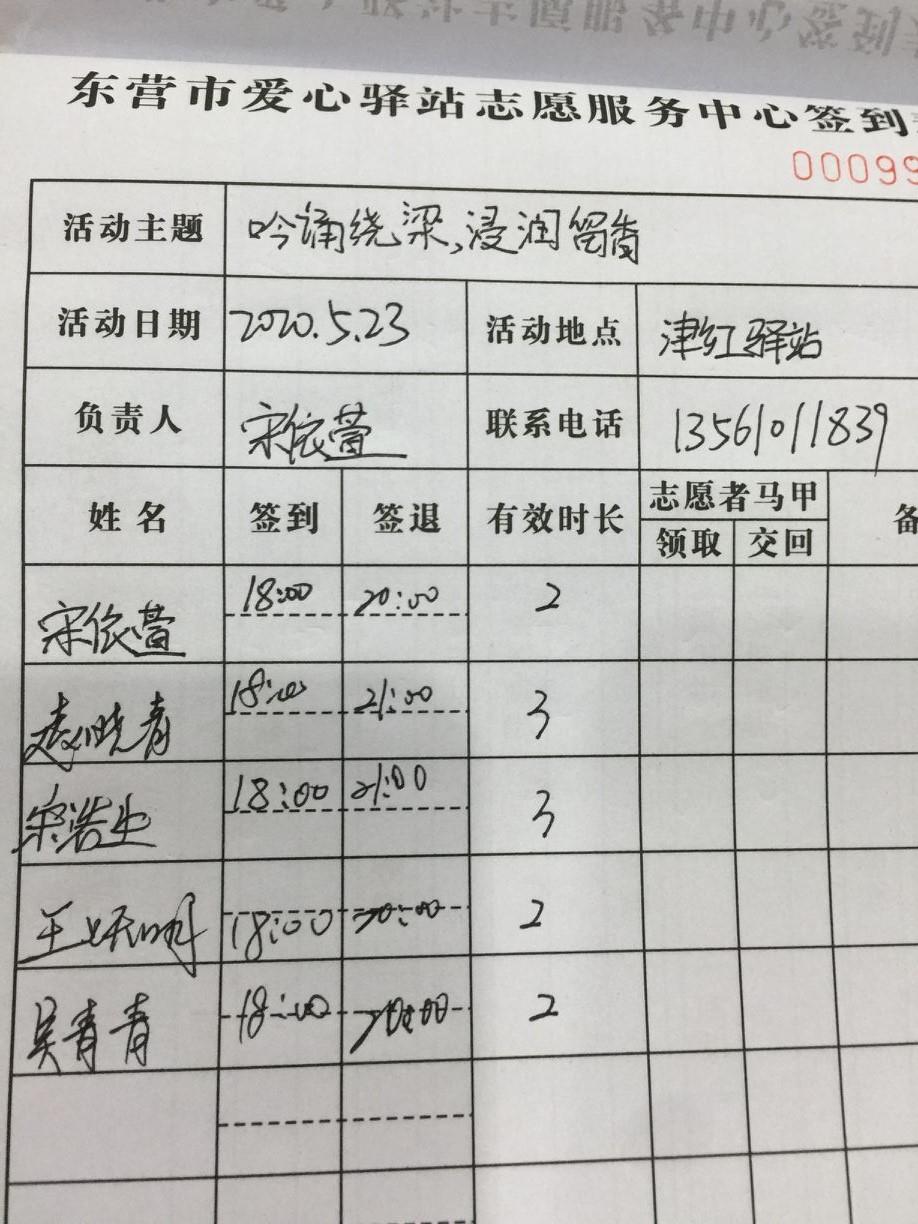 东营市爱心驿站志愿服务中心签到
00099
活动主题 吟诵绕梁,浸润留香
活动日期 2020.5.23 活动地点 津红驿站
负责人 宋依萱 联系电话 13561011839
姓名 签到 签退 有效时长 志愿者马甲 备
领取 交回
宋依萱 18:00 20:00 2
赵晓青 18:00 21:00 3
宋浩生 18:00 21:00 3
王 18:00 20:00 2
吴青青 18:00 20:00 2